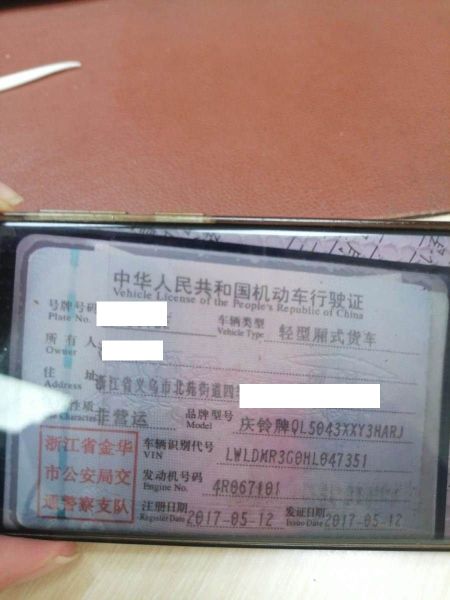 中华人民共和国机动车行驶证
Vehicle License of the People's Republic of China
号牌号码
Plate No.
车辆类型 轻型厢式货车
Vehicle Type
所有人
Owner
住址 浙江省义乌市北苑街道四
Address
性质 非营运
Character
品牌型号 庆铃牌QL5043XXY3HARJ
Model
车辆识别代号 LWLDMR3G0HL047351
VIN
发动机号码 4R067101
Engine No.
注册日期 2017-05-12
Register Date
发证日期 2017-05-12
Issue Date
浙江省金华
市公安局交
通警察支队